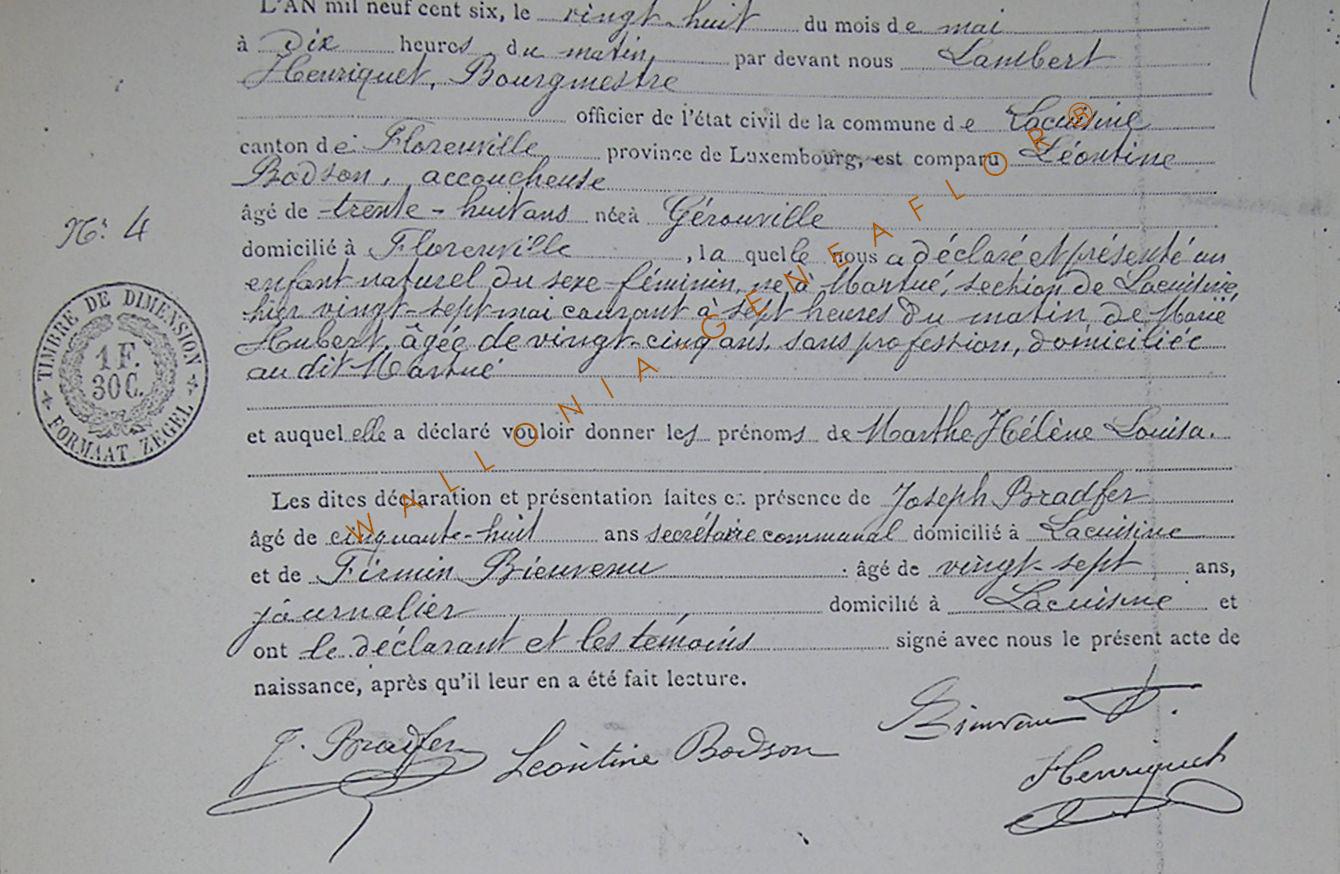 L'AN mil neuf cent six, le vingt-huit du mois de mai
à Dix heures du matin, par devant nous Lambert
Henriquet, Bourgmestre
officier de l'état civil de la commune de Lacuisine
canton de Florenville province de Luxembourg, est comparu Léontine
Bodson, accoucheuse
âgé de trente-huit ans née à Gérouville
N° 4
domicilié à Florenville, la quelle nous a déclaré et présenté un
enfant naturel du sexe féminin, né à Martué, section de Lacuisine,
hier vingt-sept mai courant à sept heures du matin, de Marie
Hubert, âgée de vingt-cinq ans, sans profession, domiciliée
au dit Martué
TIMBRE DE DIMENSION
1 F.
30 C.
FORMAAT ZEGEL
et auquel elle a déclaré vouloir donner les prénoms de Marthe Hélène Louisa.
Les dites déclaration et présentation faites en présence de Joseph Bradfer
âgé de cinquante-huit ans secrétaire communal domicilié à Lacuisine
et de Firmin Bienvenu âgé de vingt-sept ans,
journalier domicilié à Lacuisine et
ont le déclarant et les témoins signé avec nous le présent acte de
naissance, après qu'il leur en a été fait lecture.
J. Bradfer Léontine Bodson Bienvenu F.
Henriquet
WALLONIA-GENEAFLOR®